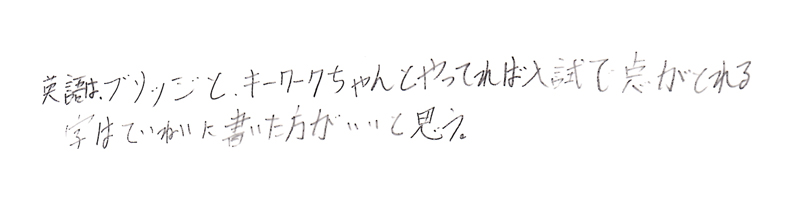 英語は、ブリッジと、キーワークちゃんとやってれば入試で点がとれる
字はていねいに書いた方がいいと思う。